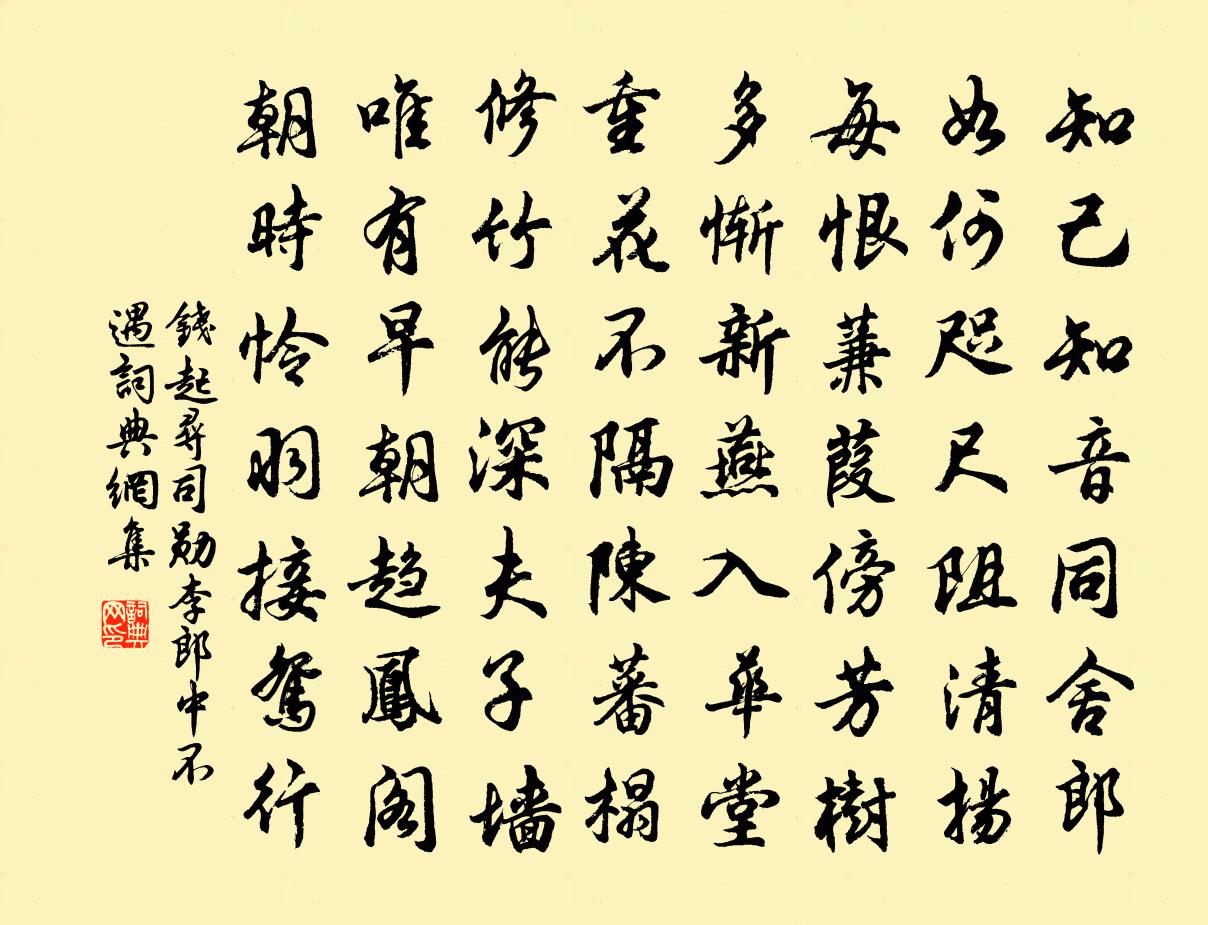 知己知音同舍郎
如何咫尺阻清揚
每恨蒹葭傍芳樹
多慚新燕入華堂
重花不隔陳蕃榻
修竹能深夫子墙
唯有早朝趨鳳閣
朝時憐羽接鴛行
錢起尋司勛李郎中不
遇詞典網集
詞典
网印